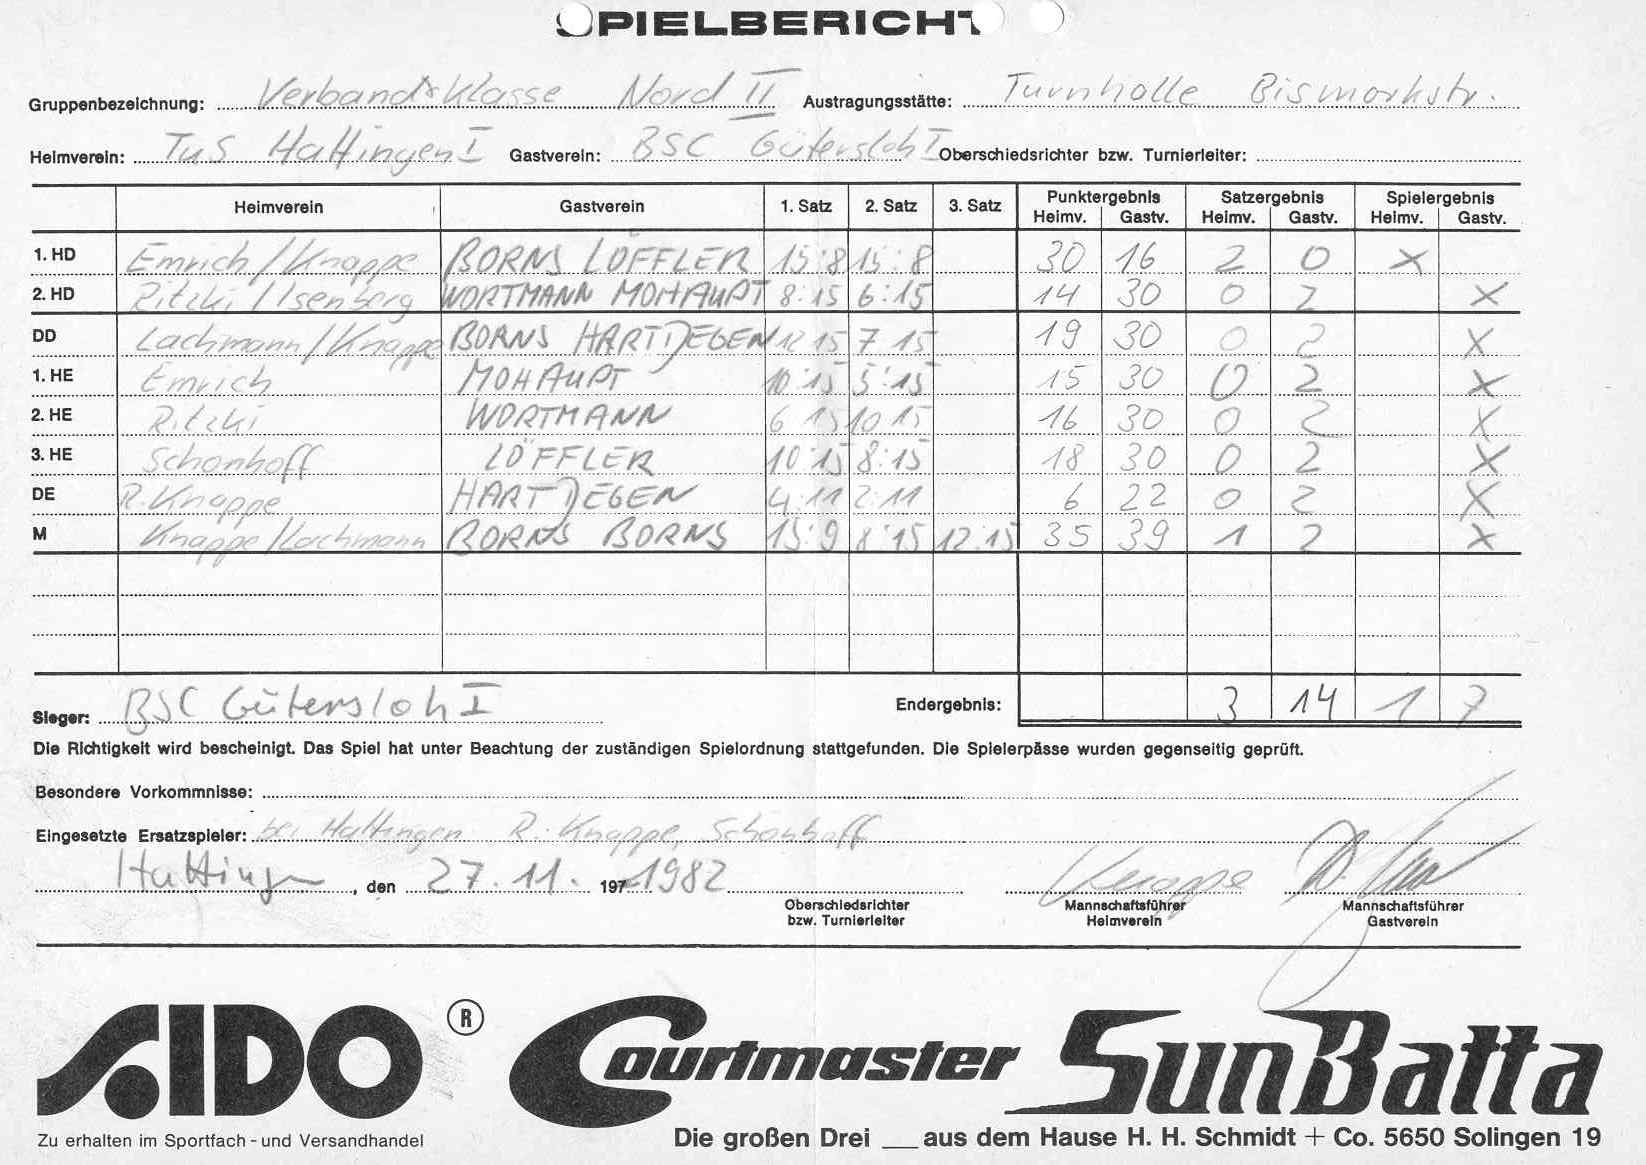 SPIELBERICHT
Gruppenbezeichnung: Verbandsklasse Nord II Austragungsstätte: Turnhalle Bismarkstr.
Heimverein: TuS Hattingen I Gastverein: BSC Gütersloh I Oberschiedsrichter bzw. Turnierleiter:
Heimverein Gastverein 1. Satz 2. Satz 3. Satz Punktergebnis Satzergebnis Spielergebnis
Heimv. Gastv. Heimv. Gastv. Heimv. Gastv.
1. HD Emrich/Knappe BORNS LÖFFLER 15:8 15:8 30 16 2 0 X
2. HD Ritzki/Isenberg WORTMANN MOHAUPT 8:15 6:15 14 30 0 2 X
DD Lachmann/Knappe BORNS HARTDEGEN 12 15 7 15 19 30 0 2 X
1. HE Emrich MOHAUPT 10:15 5:15 15 30 0 2 X
2. HE Ritzki WORTMANN 6 15 10 15 16 30 0 2 X
3. HE Schonhoff LÖFFLER 10:15 8:15 18 30 0 2 X
DE R. Knappe HARTDEGEN 4:11 2:11 6 22 0 2 X
M Knappe/Lachmann BORNS BORNS 15:9 8:15 12:15 35 39 1 2 X
Sieger: BSC Gütersloh I Endergebnis: 3 14 1 7
Die Richtigkeit wird bescheinigt. Das Spiel hat unter Beachtung der zuständigen Spielordnung stattgefunden. Die Spielerpässe wurden gegenseitig geprüft.
Besondere Vorkommnisse:
Eingesetzte Ersatzspieler: bei Hattingen R. Knappe, Schonhoff
Hattingen, den 27.11. 197 1982 Knappe
Oberschiedsrichter Mannschaftsführer Mannschaftsführer
bzw. Turnierleiter Heimverein Gastverein
AIDO ® Courtmaster SunBatta
Zu erhalten im Sportfach- und Versandhandel Die großen Drei __ aus dem Hause H. H. Schmidt + Co. 5650 Solingen 19